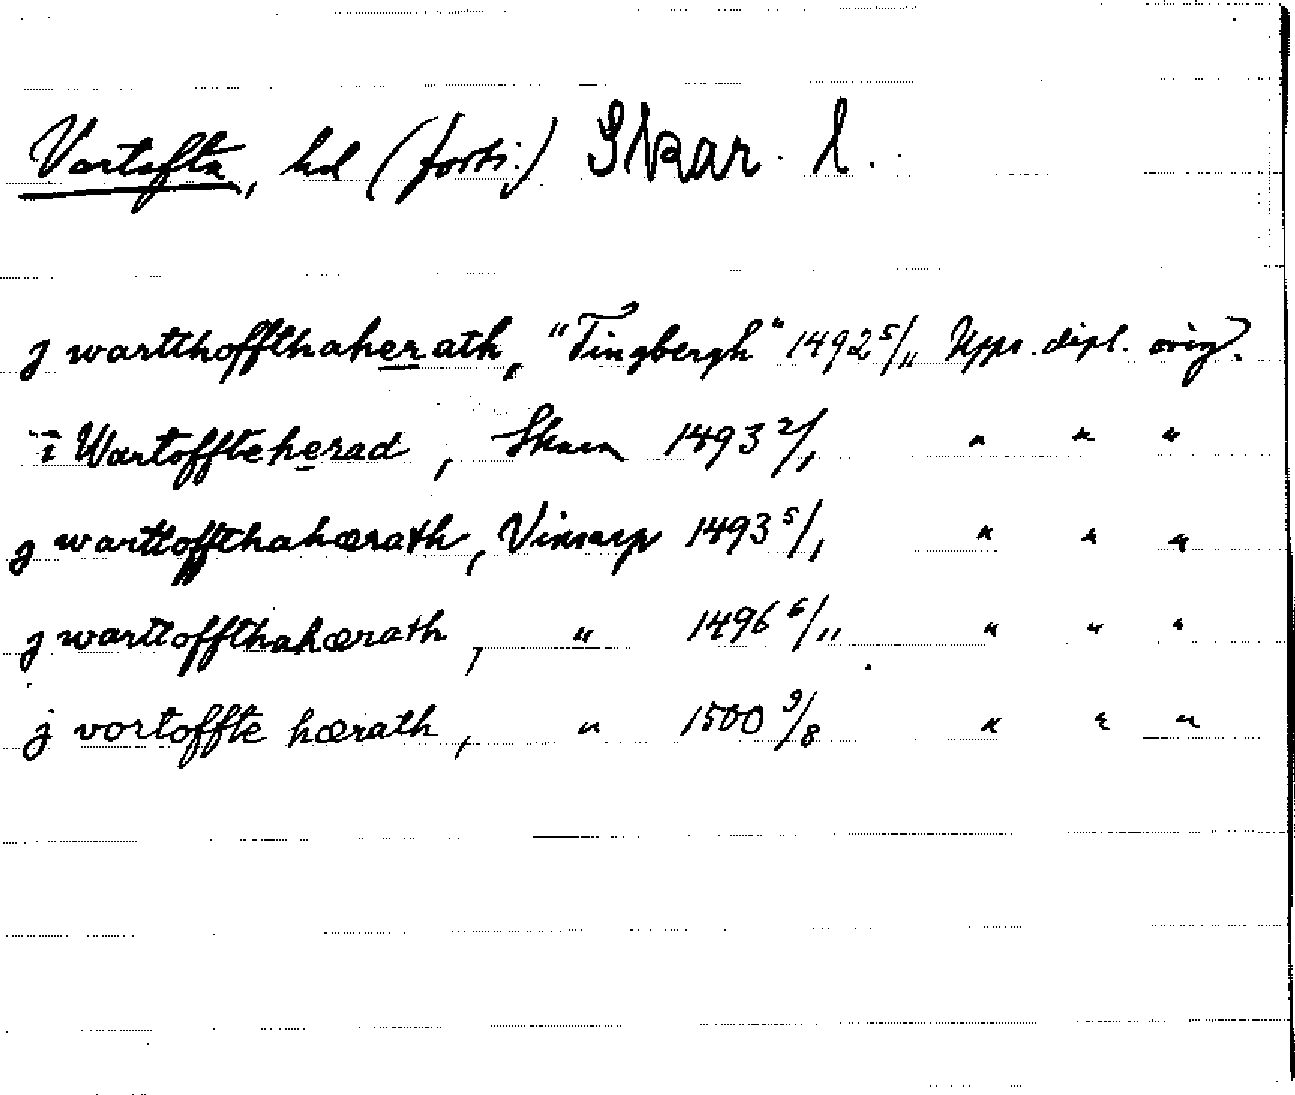 Vartofta, hd (forts.) Skar. l.
j wartthoffthaherath, "Tingbergh" 1492 5/11 Upps. dipl. orig.
i Wartoffteherad, Skara 1493 2/1 " " "
j warttoffthahærath, Vinsarp 1493 5/1 " " "
j warttoffthahærath, " 1496 6/11 " " "
j vortoffte hærath, " 1500 9/8 " " "